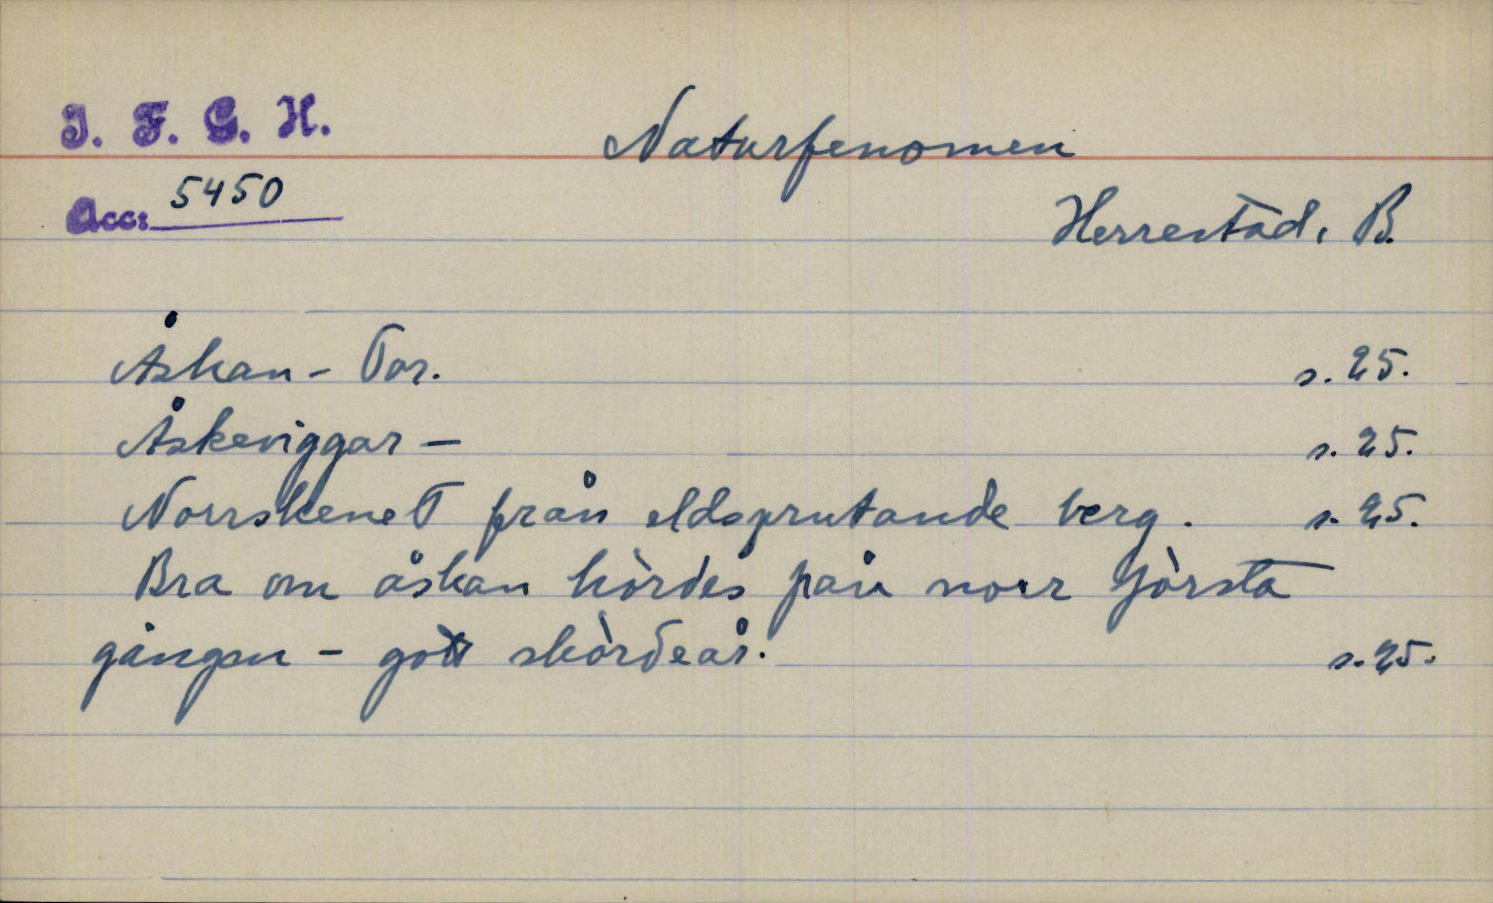 I. F. G. H.
Naturfenomen
Acc: 5450
Herrestad, B.
Åskan - Tor. s. 25.
Åskeviggar - s. 25.
Norrskenet från eldsprutande berg. s. 25.
Bra om åskan hördes från norr första
gången - gott skördeår. s. 25.